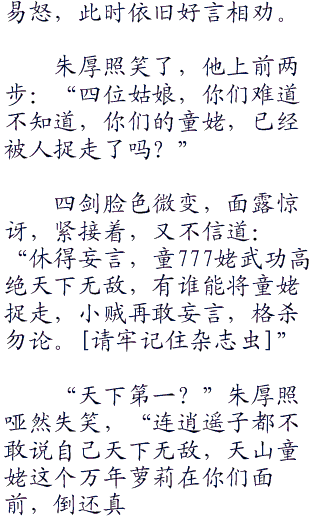 易怒，此时依旧好言相劝。
朱厚照笑了，他上前两
步：“四位姑娘，你们难道
不知道，你们的童姥，已经
被人捉走了吗？”
四剑脸色微变，面露惊
讶，紧接着，又不信道：
“休得妄言，童777姥武功高
绝天下无敌，有谁能将童姥
捉走，小贼再敢妄言，格杀
勿论。[请牢记住杂志虫]”
“天下第一？”朱厚照
哑然失笑，“连逍遥子都不
敢说自己天下无敌，天山童
姥这个万年萝莉在你们面
前，倒还真